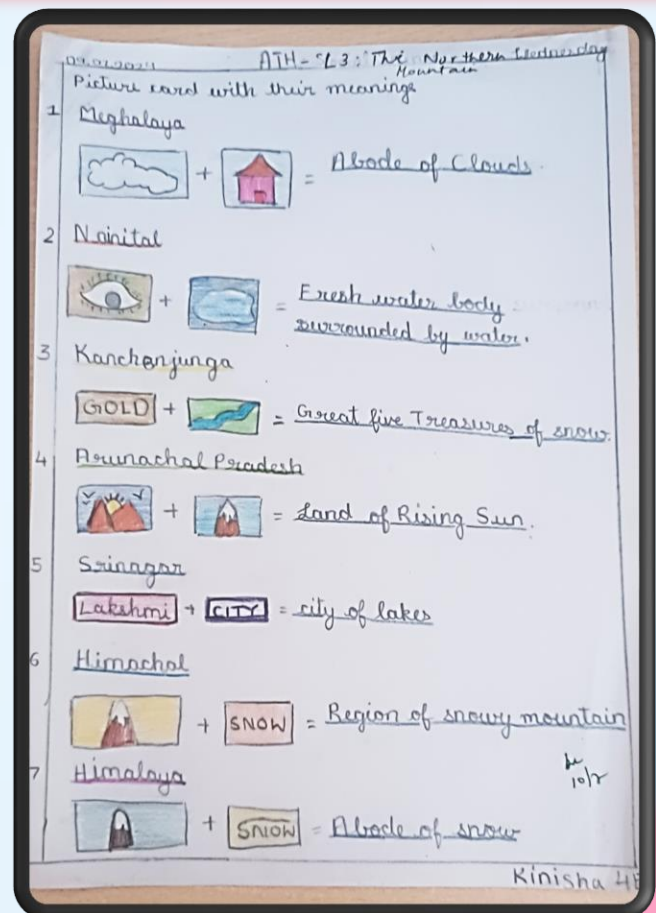 ATH - L3: The Northern Wednesday
Mountain
Picture card with their meanings
1 Meghalaya
+ = Abode of Clouds.
2 Nainital
+ = Fresh water body
surrounded by water.
3 Kanchenjunga
GOLD + = Great five Treasures of snow.
4 Arunachal Pradesh
+ = Land of Rising Sun.
5 Srinagar
Lakshmi + CITY = city of lakes
6 Himachal
+ SNOW = Region of snowy mountain
7 Himalaya
+ SNOW = Abode of snow
10/2
Kinisha 4E